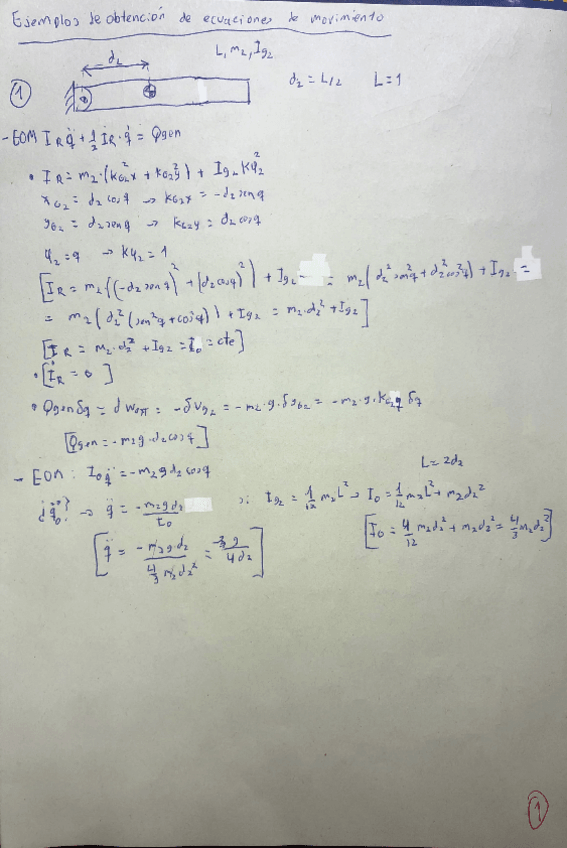 Ejemplos de obtención de ecuaciones de movimiento
L, m₂, Ig₂
d₂
① d₂ = L/2 L = 1
- EOM I_R q̈ + ½ İ_R · q̇ = Qgen
• I_R = m₂ · (kG₂x² + kG₂y²) + Ig₂ Kφ₂²
xG₂ = d₂ cosq → kG₂x = -d₂ senq
yG₂ = d₂ senq → kG₂y = d₂ cosq
φ₂ = q → Kφ₂ = 1
[I_R = m₂ ((-d₂ senq)² + (d₂ cosq)²) + Ig₂ = m₂ (d₂² sen²q + d₂² cos²q) + Ig₂ =
= m₂ (d₂² (sen²q + cos²q)) + Ig₂ = m₂ · d₂² + Ig₂]
[I_R = m₂ · d₂² + Ig₂ = I₀ = cte]
• [İ_R = 0]
• Qgen δq = δWext = -δVg₂ = -m₂ · g · δyG₂ = -m₂ · g · kG₂y δq
[Qgen = -m₂ g · d₂ cosq]
- EOM: I₀ q̈ = -m₂ g d₂ cosq
L = 2d₂
¿q̈₀? → q̈ = -m₂ g d₂ / I₀ ; Ig₂ = 1/12 m₂ L² → I₀ = 1/12 m₂ L² + m₂ d₂²
[I₀ = 4/12 m₂ d₂² + m₂ d₂² = 4/3 m₂ d₂²]
[q̈ = -m₂ g d₂ / 4/3 m₂ d₂² = -3g / 4d₂]
①